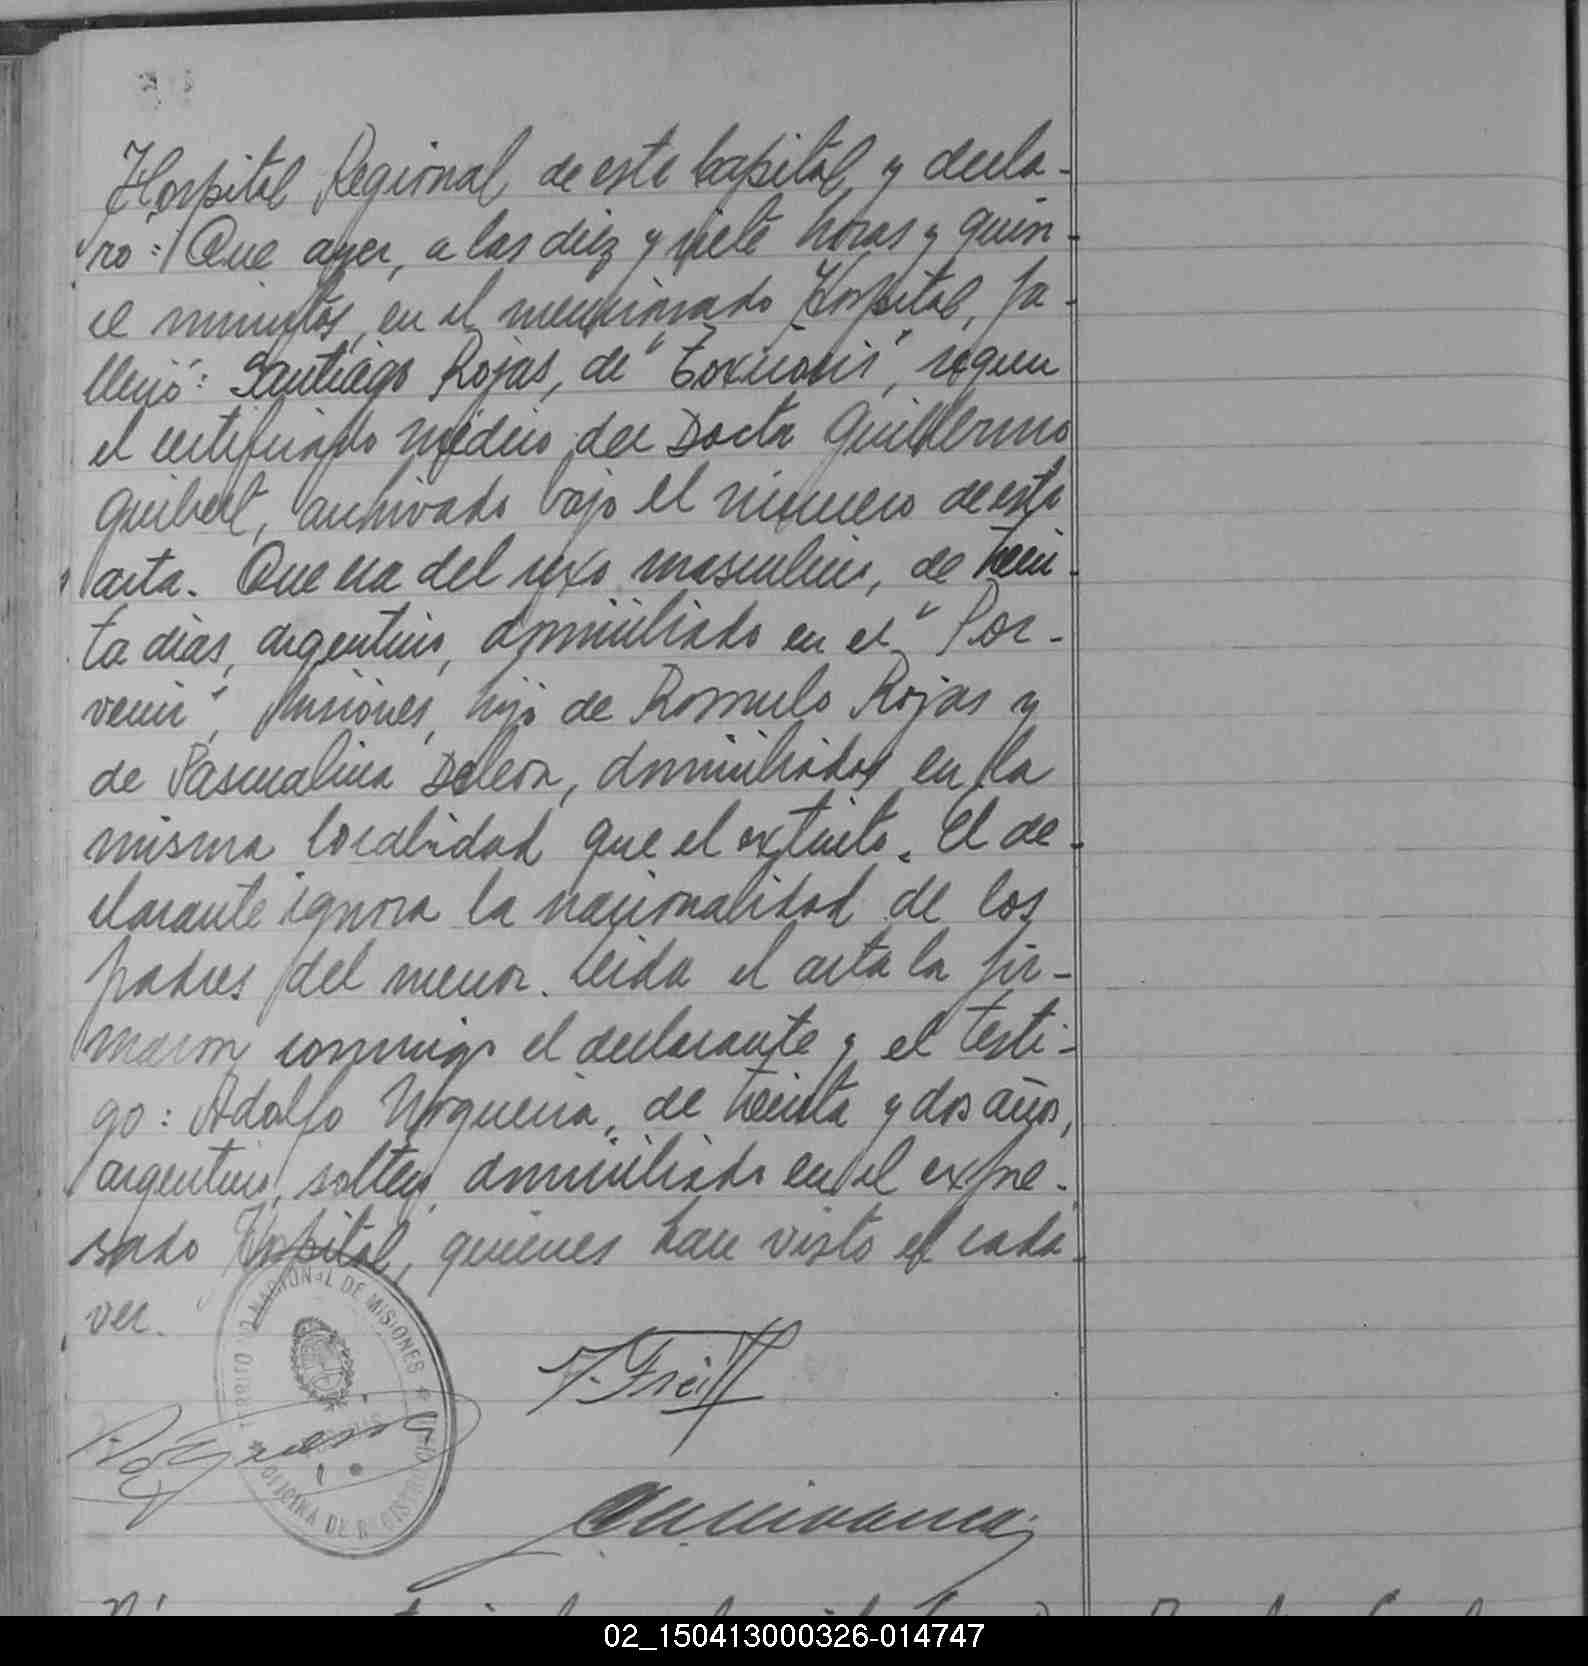 Hospital Regional de esta Capital, y decla-
ró: Que ayer, a las diez y siete horas y quin-
ce minutos, en el mencionado Hospital, fa-
lleció: Santiago Rojas, de "Toxicosis", según
el certificado médico del Doctor Guillermo
Guibert, archivado bajo el número de esta
acta. Que era del sexo masculino, de trein-
ta días, argentino, domiciliado en el "Por-
venir", Misiones, hijo de Romulo Rojas y
de Pascualina Deleon, domiciliados en la
misma localidad que el extinto. El de-
clarante ignora la nacionalidad de los
padres del menor. Leida el acta la fir-
maron conmigo el declarante y el testi-
go: Adolfo Nogueira, de treinta y dos años,
argentino, soltero, domiciliado en el expre-
sado Hospital, quienes han visto el cada-
ver.
NACIONAL DE MISIONES
OFICINA DE REGISTRO
02_150413000326-014747